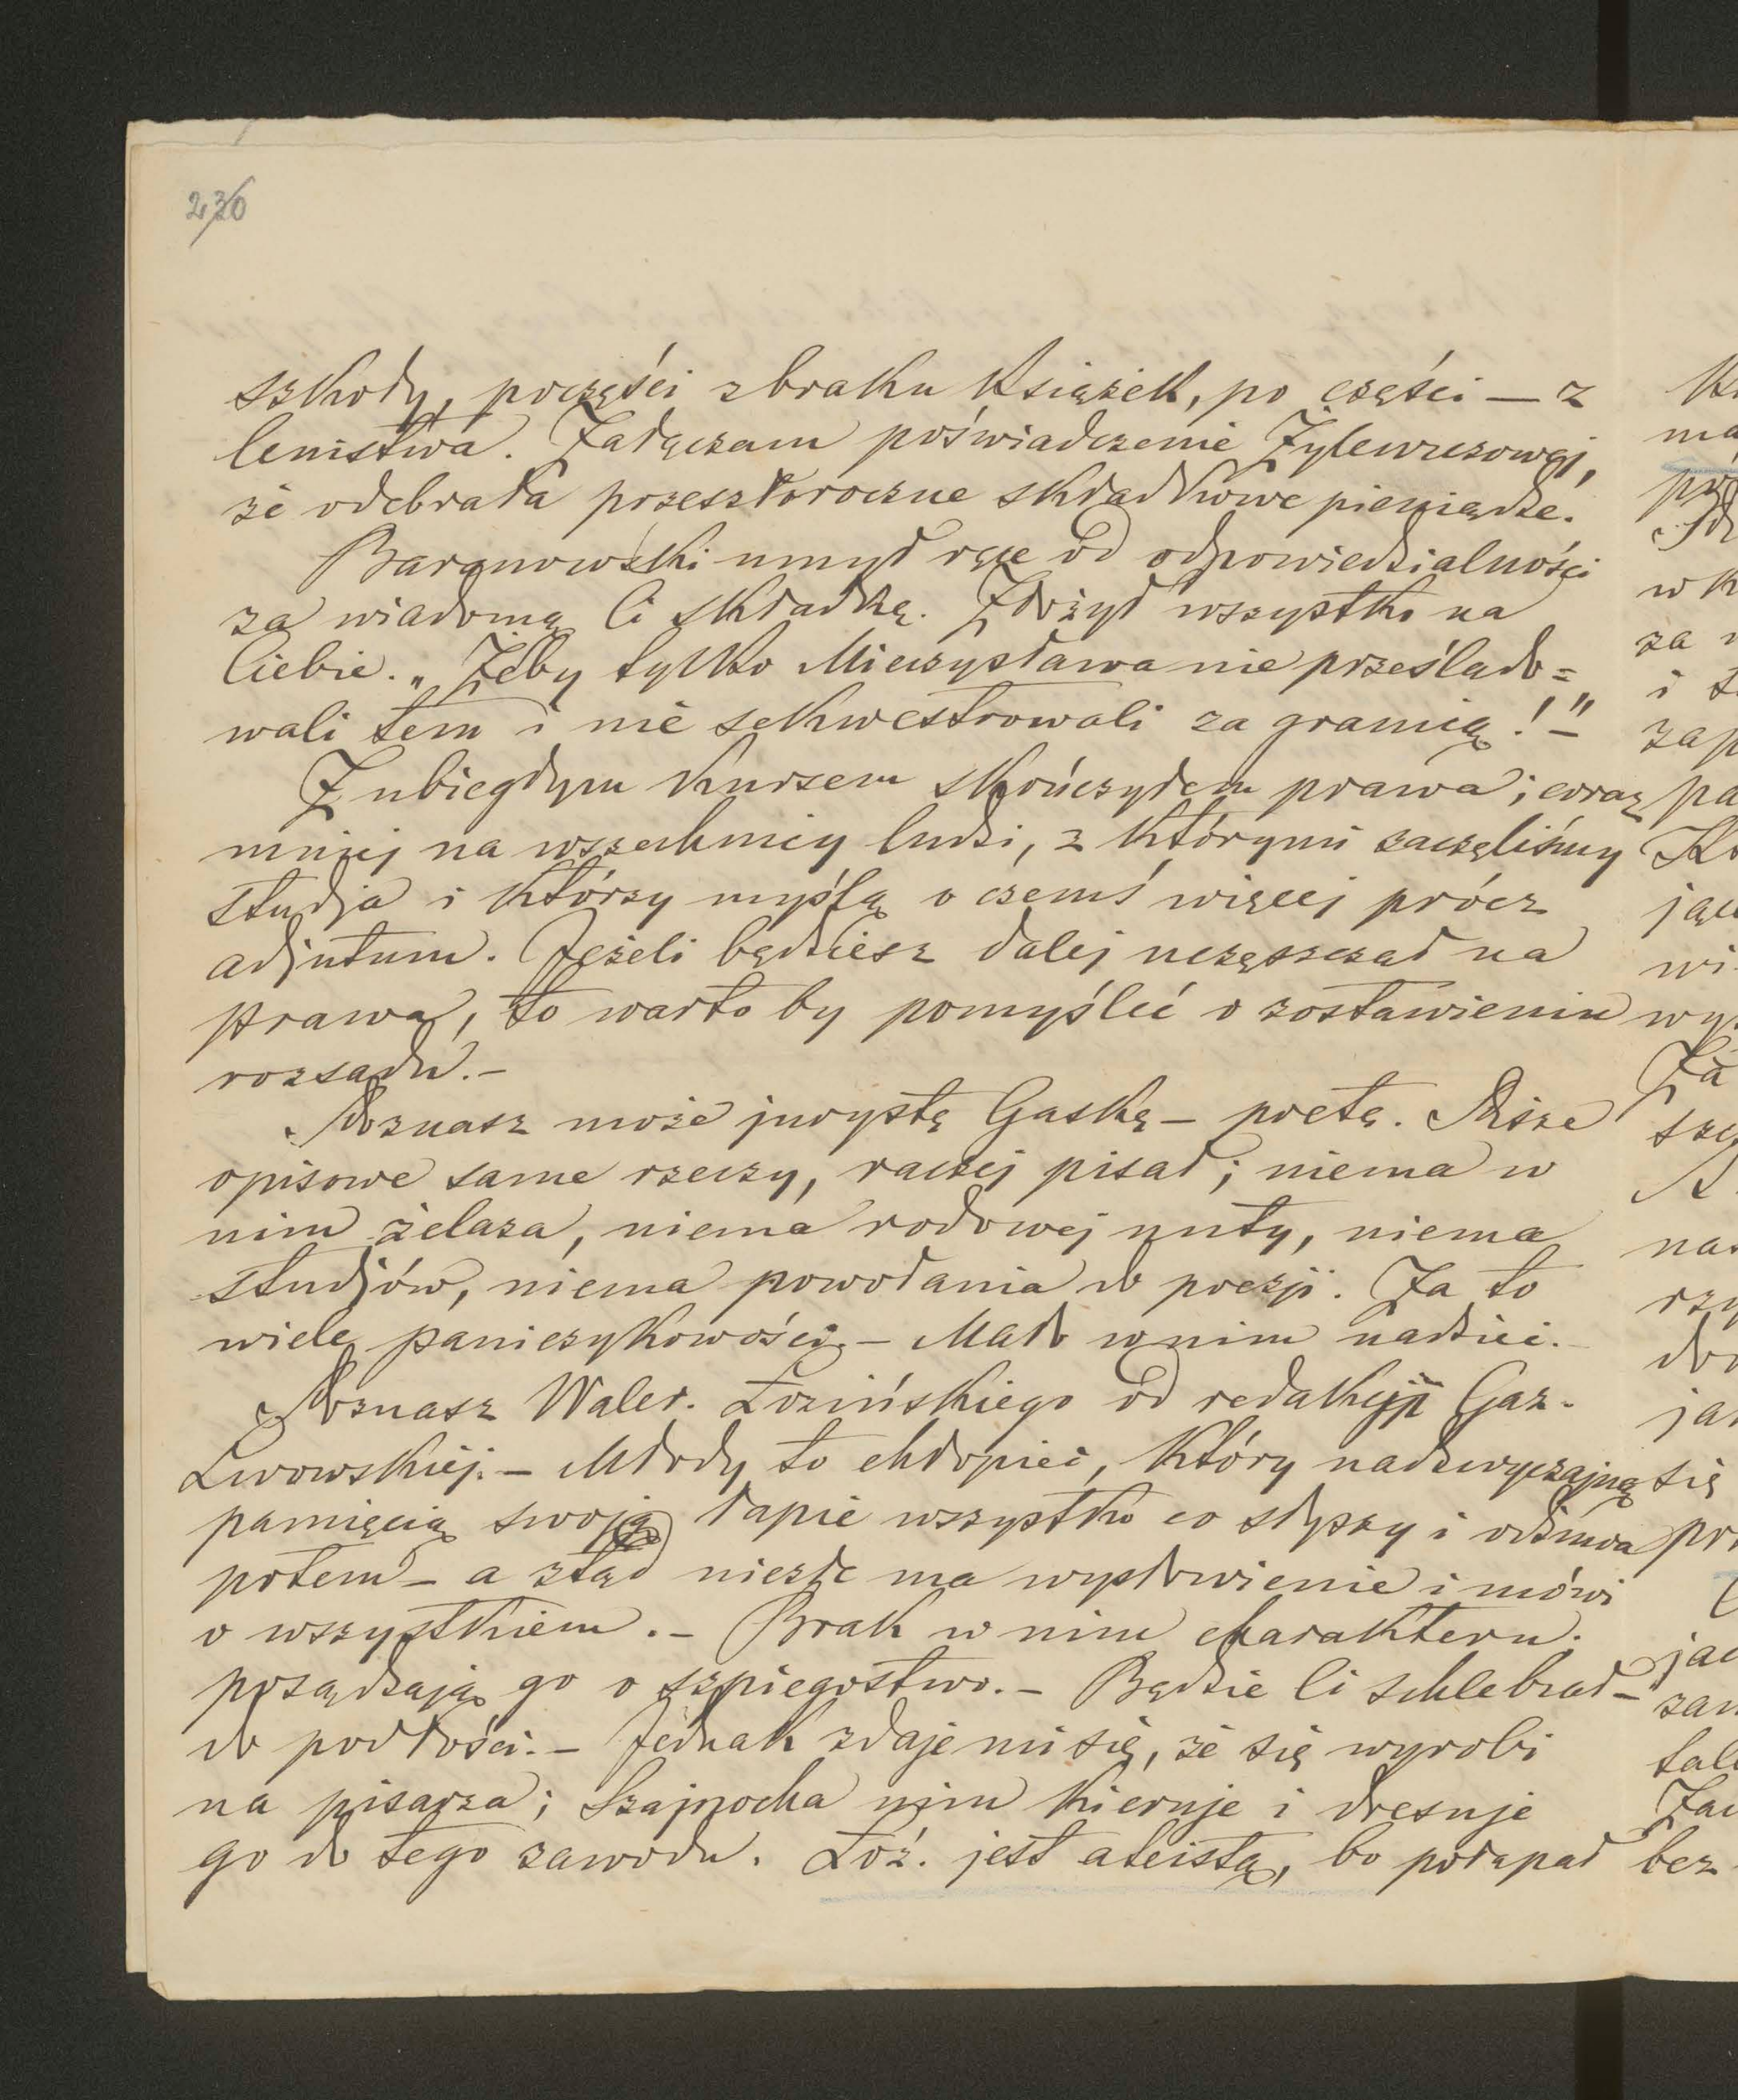 236
szkody, poczęści z braku książek, po części — z
lenistwa. Załączam poświadczenie Żylewiczowej,
że odebrała przeszłoroczne składkowe pieniądze.
Baranowski umył ręce od odpowiedzialności
za wiadomą Ci składkę. Złożył wszystko na
Ciebie. „Żeby tylko Mieczysława nie prześlado=
wali tem i nie sekwestrowali za granicą!" –
Z ubiegłym kursem skończyłem prawa; coraz
mniej na wszechnicy ludzi, z którymi zaczęliśmy
studja i którzy myślą o czemś więcej prócz
adjutum. Jeżeli będziesz dalej uczęszczał na
prawa, to warto by pomyśleć o zostawieniu
rozsadu. –
Poznasz może jurystę Gaskę – poetę. Pisze
opisowe same rzeczy, raczej pisał; niema w
nim żelaza, niema rodowej nuty, niema
studjów, niema powołania do poezji. Za to
wiele paniczykowości. – Mało w nim nadziei.
Poznasz Waler. Łozińskiego od redakcji Gaz.
Lwowskiej. – Młody to chłopiec, który nadzwyczajną
pamięcią swoją łapie wszystko co słyszy i odśmwa
potem – a ztąd niezłe ma wysłowienie i mówi
o wszystkiem. – Brak w nim charakteru.
posądzają go o szpiegostwo. – Będzie Ci schlebiał –
do podłości. – Jednak zdaje mi się, że się wyrobi
na pisarza; Szajnocha nim kieruje i dresuje
go do tego zawodu. Łoź. jest ateistą, bo połapał